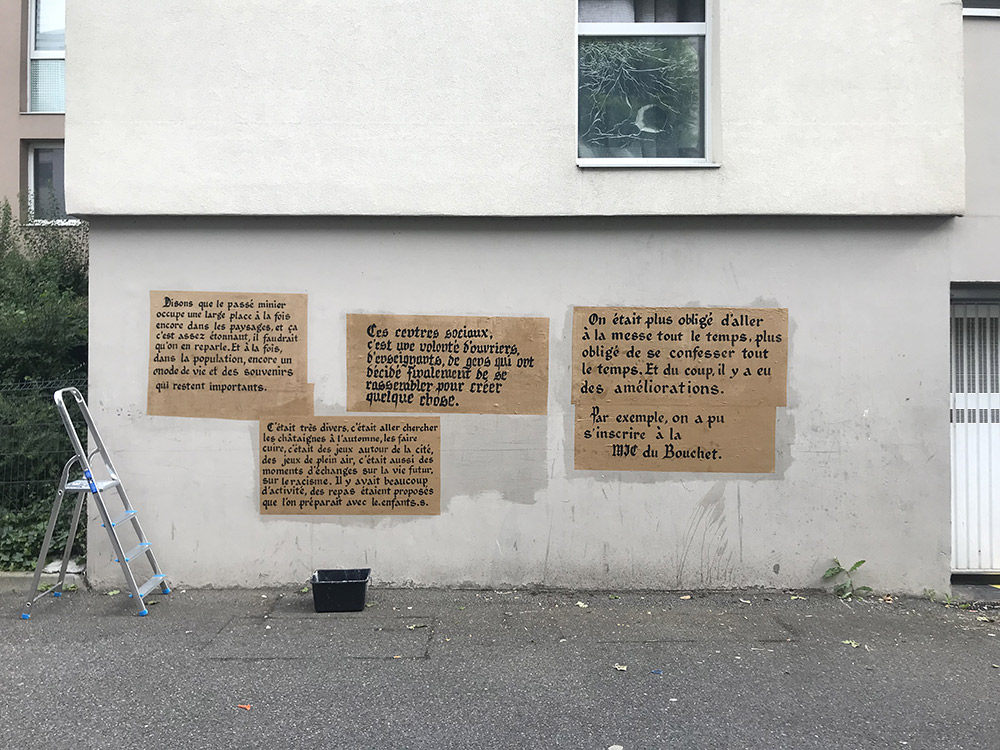 Disons que le passé minier
occupe une large place à la fois
encore dans les paysages, et ça
c'est assez étonnant, il faudrait
qu'on en reparle. Et à la fois,
dans la population, encore un
mode de vie et des souvenirs
qui restent importants.
C'était très divers, c'était aller chercher
les châtaignes à l'automne, les faire
cuire, c'était des jeux autour de la cité,
des jeux de plein air, c'était aussi des
moments d'échanges sur la vie futur,
sur le racisme. Il y avait beaucoup
d'activité, des repas étaient proposes
que l'on préparait avec le.enfants.s.
Ces centres sociaux,
c'est une volonté d'ouvriers,
d'enseignants, de gens qui ont
décidé finalement de se
rassembler pour créer
quelque chose.
On était plus obligé d'aller
à la messe tout le temps, plus
obligé de se confesser tout
le temps. Et du coup, il y a eu
des améliorations.
Par exemple, on a pu
s'inscrire à la
MJC du Bouchet.